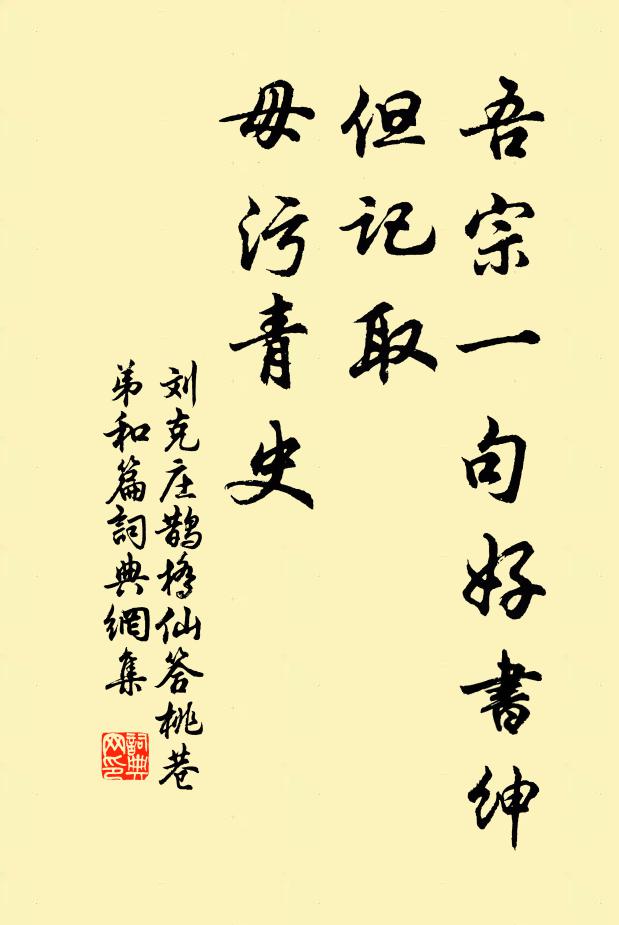 吾宗一句好書紳
但记取
毋污青史
刘克庄鹊橋仙答桃巷
弟和篇詞典網集
詞典
网印